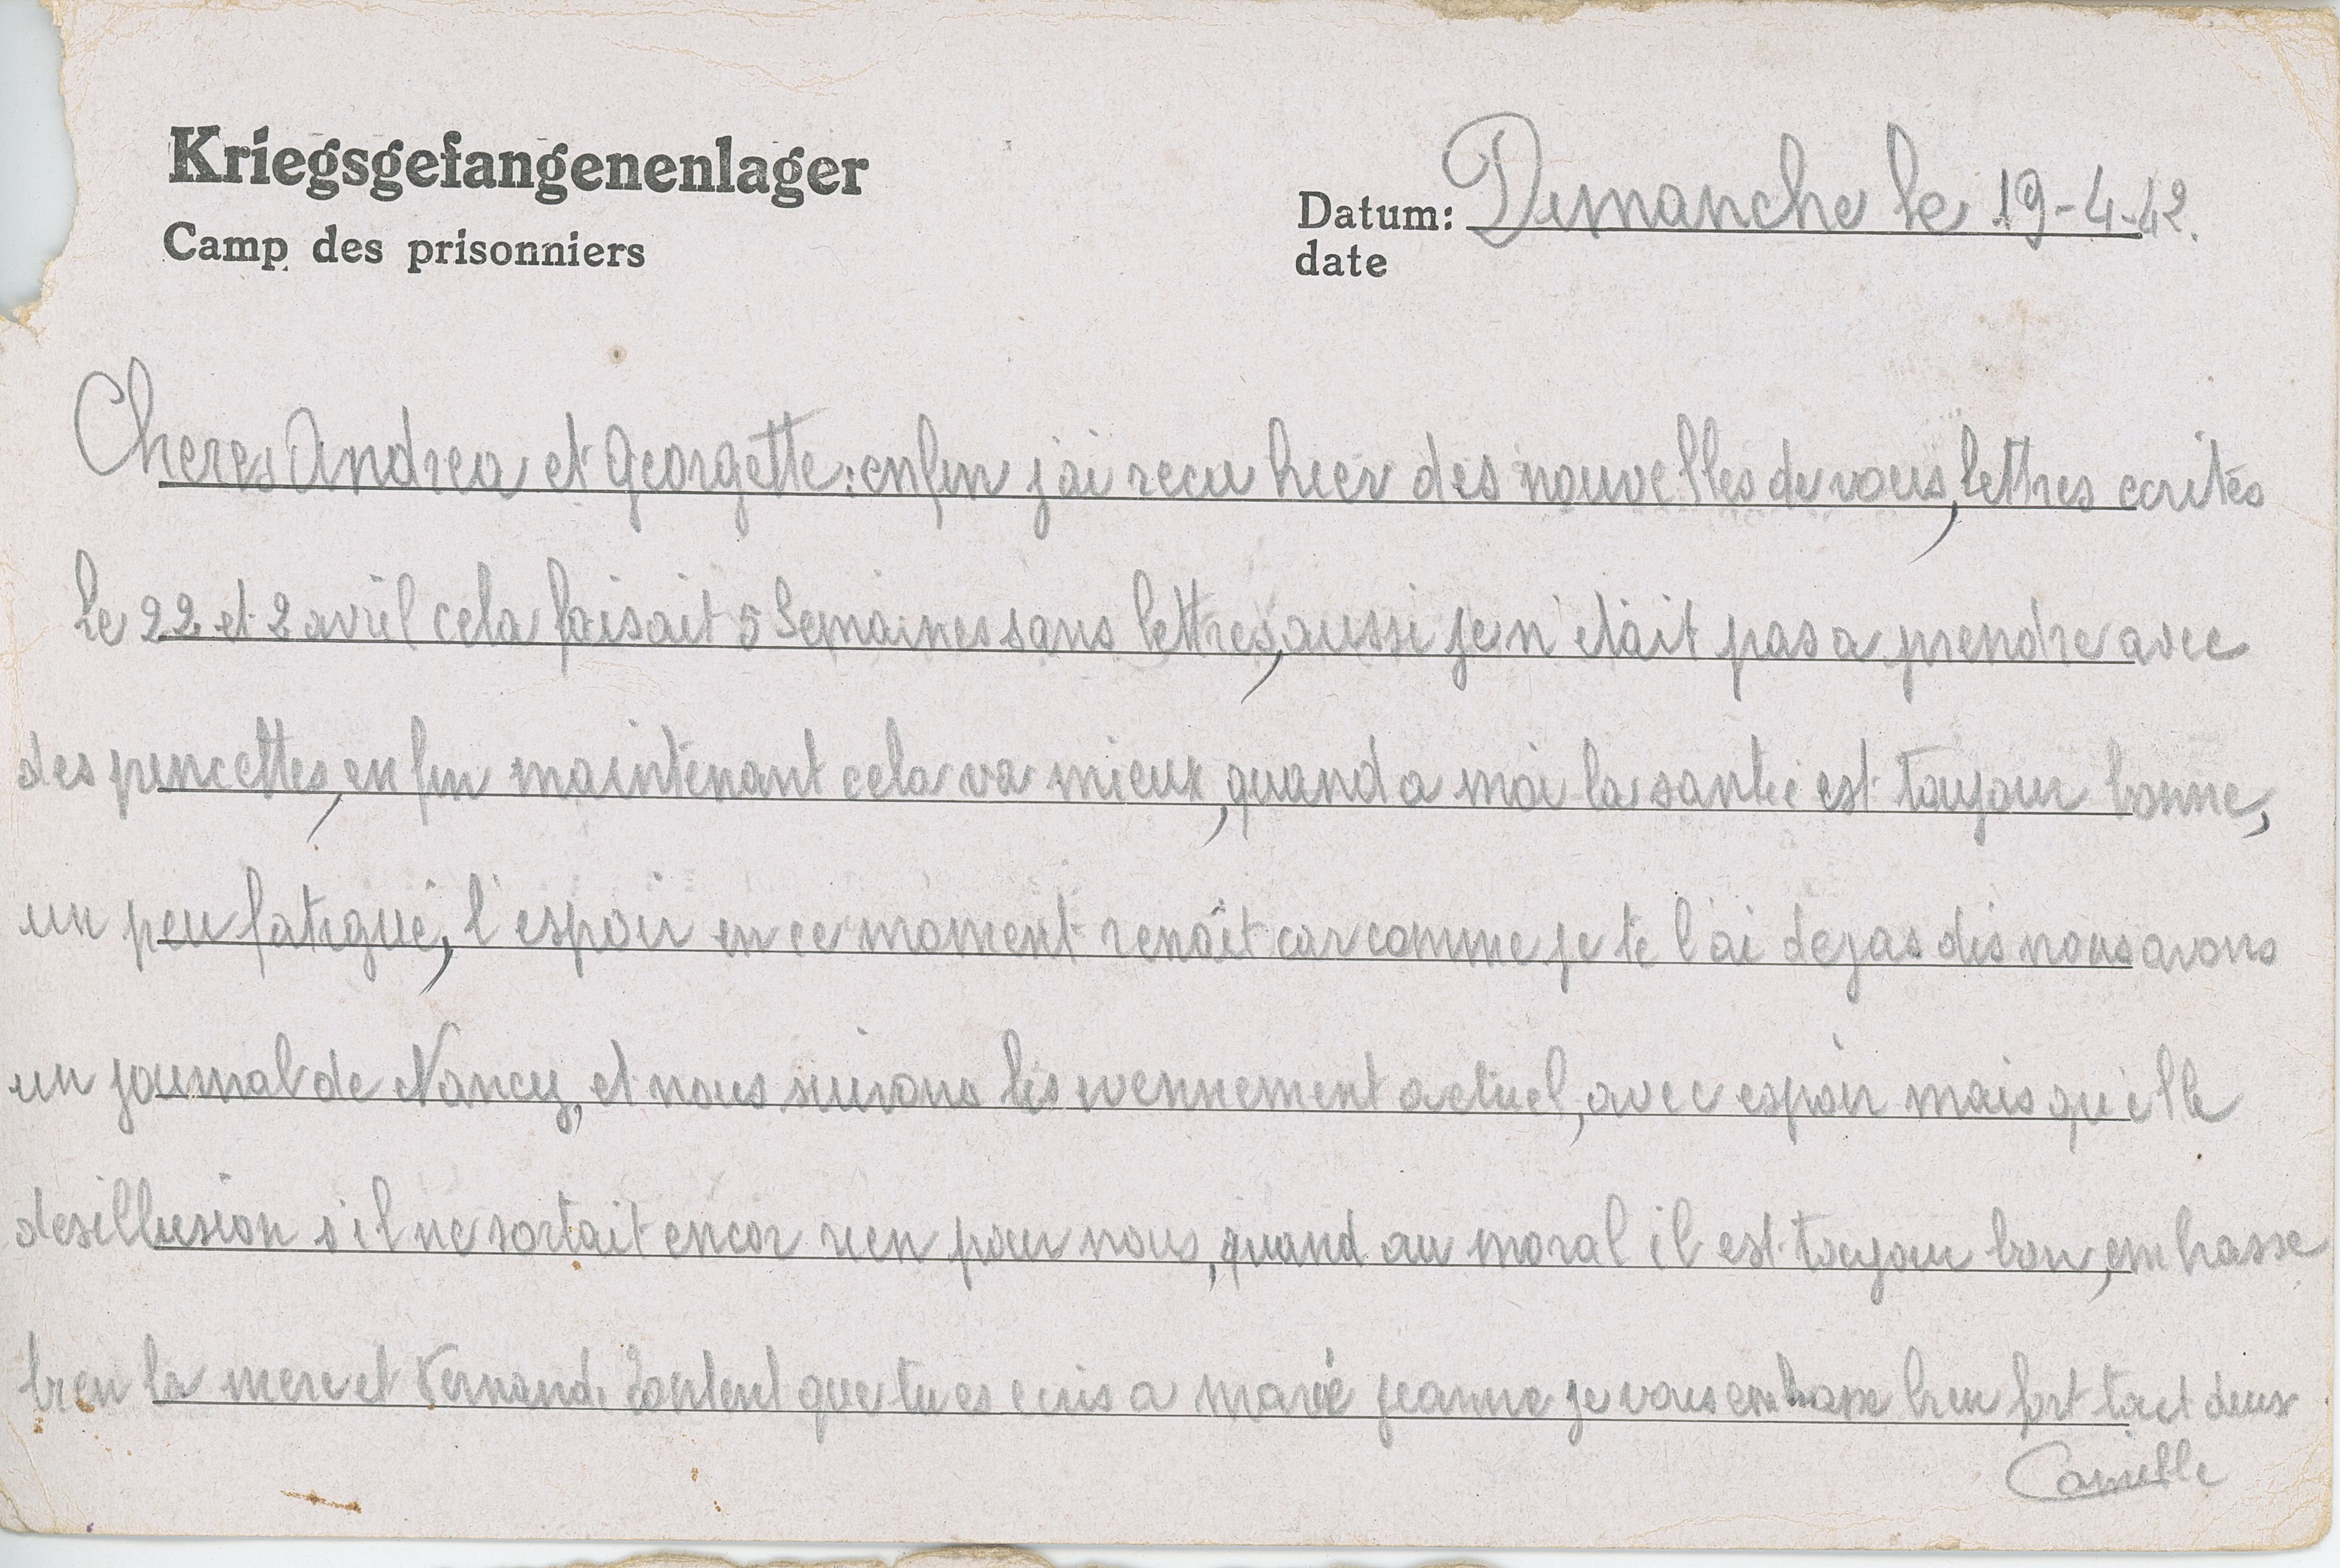 Kriegsgefangenenlager
Camp des prisonniers
Datum: Dimanche le 19-4-42.
date
Cheres Andrea et Georgette: enfin j'ai recu hier des nouvelles de vous, lettres ecrites
le 22 et 2 avril cela faisait 5 Semaines sans lettres, aussi je n'était pas a prendre avec
des pincettes, enfin maintenant cela va mieux, quand a moi la santé est toujour bonne,
un peu fatigué, l'espoir en ce moment renaît car comme je te l'ai dejas dis nous avons
un journal de Nancy, et nous suivons les evennement actuel, avec espoir mais qu'elle
desillusion s'il ne sortait encor rien pour nous, quand au moral il est toujour bon, embrasse
bien la mere et Fernand. Content que tu es ecris a marie jeanne je vous embrasse bien fort tout deux
Camille